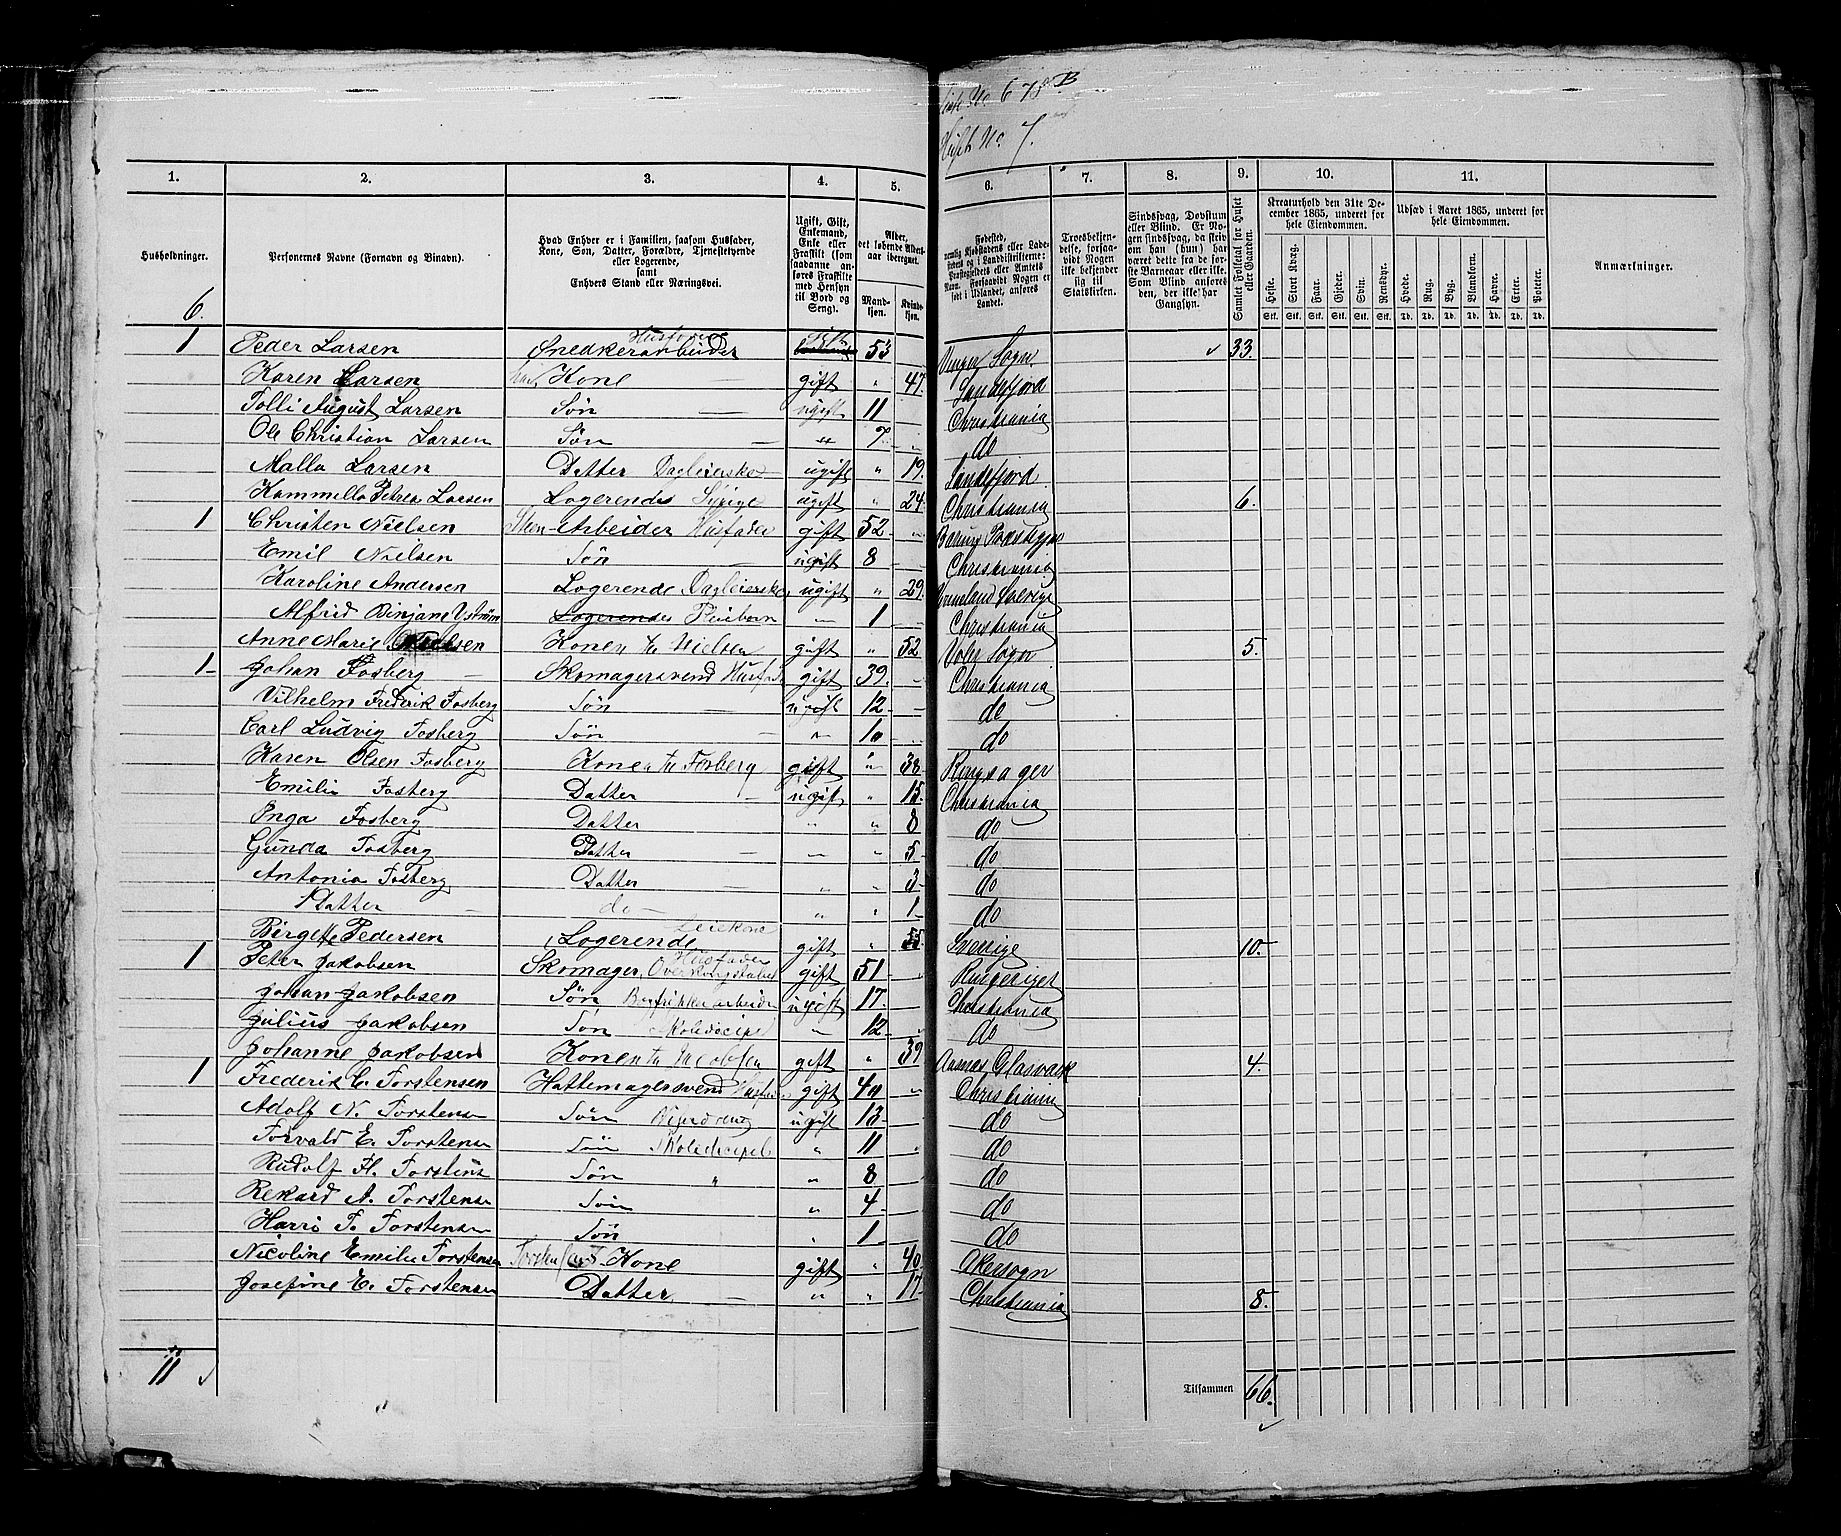 No. 678 B
No. 7.
1. 2. 3. 4. 5. 6. 7. 8. 9. 10. 11.
Husholdninger.
Personernes Navne (Fornavn og Binavn).
Hvad Enhver er i Familien, saasom Husfader, Kone, Søn, Datter, Forældre, Tjenestetyende eller Logerende, samt Enhvers Stand eller Næringsvei.
Ugift, Gift, Enkemand, Enke eller Fraskilt (som saadanne anføres Fraskilte med Hensyn til Bord og Seng).
Alder, det løbende Aldersaar iberegnet.
Mandkjøn. Kvindekjøn.
Fødested,
Troesbekjendelse, forsaavidt Nogen ikke bekjender sig til Statskirken.
Sindssvag, Døvstum eller Blind. Er Nogen sindssvag, da skriv om han (hun) har været dette fra de første Barneaar eller ikke. Som Blind anføres den, der ikke har Gangsyn.
Samlet Folketal for Huset eller Gaarden.
Kreaturhold den 31te December 1865, underet for hele Eiendommen.
Heste. Stort Kvæg. Faar. Gjeder. Svin. Rensdyr.
Udsæd i Aaret 1865, underet for hele Eiendommen.
Hvede. Rug. Byg. Blandkorn. Havre. Erter. Poteter.
Stk. Stk. Stk. Stk. Stk. Stk. Td. Td. Td. Td. Td. Td. Td.
Anmærkninger.
6.
1 Peder Larsen Snedkerarbeider Husfader 53 Vinger Sogn 33.
Karen Larsen Kone gift " 47. Sandefjord
Tolli August Larsen Søn ugift 11 Christiania
Ole Christian Larsen Søn " 7 do
Malla Larsen Datter Dagleierske ugift " 19. Sandefjord
Kammilla Petrea Larsen Logerende Sypige ugift " 24. Christiania 6.
1 Christen Nielsen Arbeider Husfader gift 52
Emil Nielsen Søn ugift 8 Christiania
Karoline Andersen Logerende Dagleierske ugift " 29. Sverige
Alfrid Logerende Pleiebarn 1 Christiania
Anne Marie Nielsen Konen til Nielsen gift " 52 Sogn 5.
1 Johan Fosberg Skomagersvend Husfader gift 39. Christiania
Vilhelm Frederik Fosberg Søn ugift 12 do
Carl Ludvig Fosberg Søn " 10 do
Karen Olsen Fosberg Konen til Fosberg gift " 38 Ringsager
Emilie Fosberg Datter ugift " 15. Christiania
Inga Fosberg Datter " " 8 do
Gunda Fosberg Datter " " 5 do
Antonia Fosberg Datter " " 3 do
1 Datter do " " 1 do
Birgette Pedersen Logerende gift " 55. Sverrige 10.
1 Peter Jakobsen Skomager, Husfader Overkonstabel gift 51 Ringeriget
Johan Jakobsen Søn ugift 17. Christiania
Julius Jakobsen Søn Skoledicipel " 12 do
Johanne Jakobsen Konen til Jacobsen gift " 39 Aasnæs Glasværk 4.
1 Frederik C. Torstensen Hattemagersvend Husfader gift 40 Christiania
Adolf N. Torstensen Søn ugift 13 do
Torvald E. Torstensen Søn Skoledicipel " 11 do
Rudolf H. Torstensen Søn " " 8 do
Rekard A. Torstensen Søn " 4 do
Harri T. Torstensen Søn " 1 do
Nicoline Emilie Torstensen Kone gift " 40. Akersogn
Josefine E. Torstensen Datter " " 17 Christiania 8.
11
Tilsammen 66.